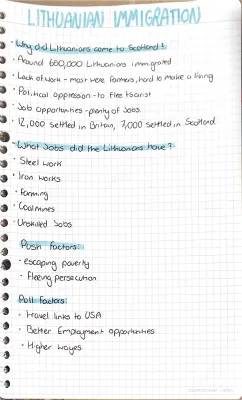 LITHUANIAN IMMIGRATION
Why did Lithuanians come to Scotland?
• Around 650,000 Lithuanians immigrated
• Lack of work - most were farmers, hard to make a living
• Political oppression - to flee tsarist
• Job opportunities - plenty of jobs
• 12,000 settled in Britain, 7,000 settled in Scotland
What Jobs did the Lithuanians have?
• Steel work
• Iron works
• Farming
• Coalmines
• Unskilled Jobs
Push factors:
• escaping poverty
• Fleeing persecution
Pull factors:
• Travel links to USA
• Better Employment opportunities
• Higher wages